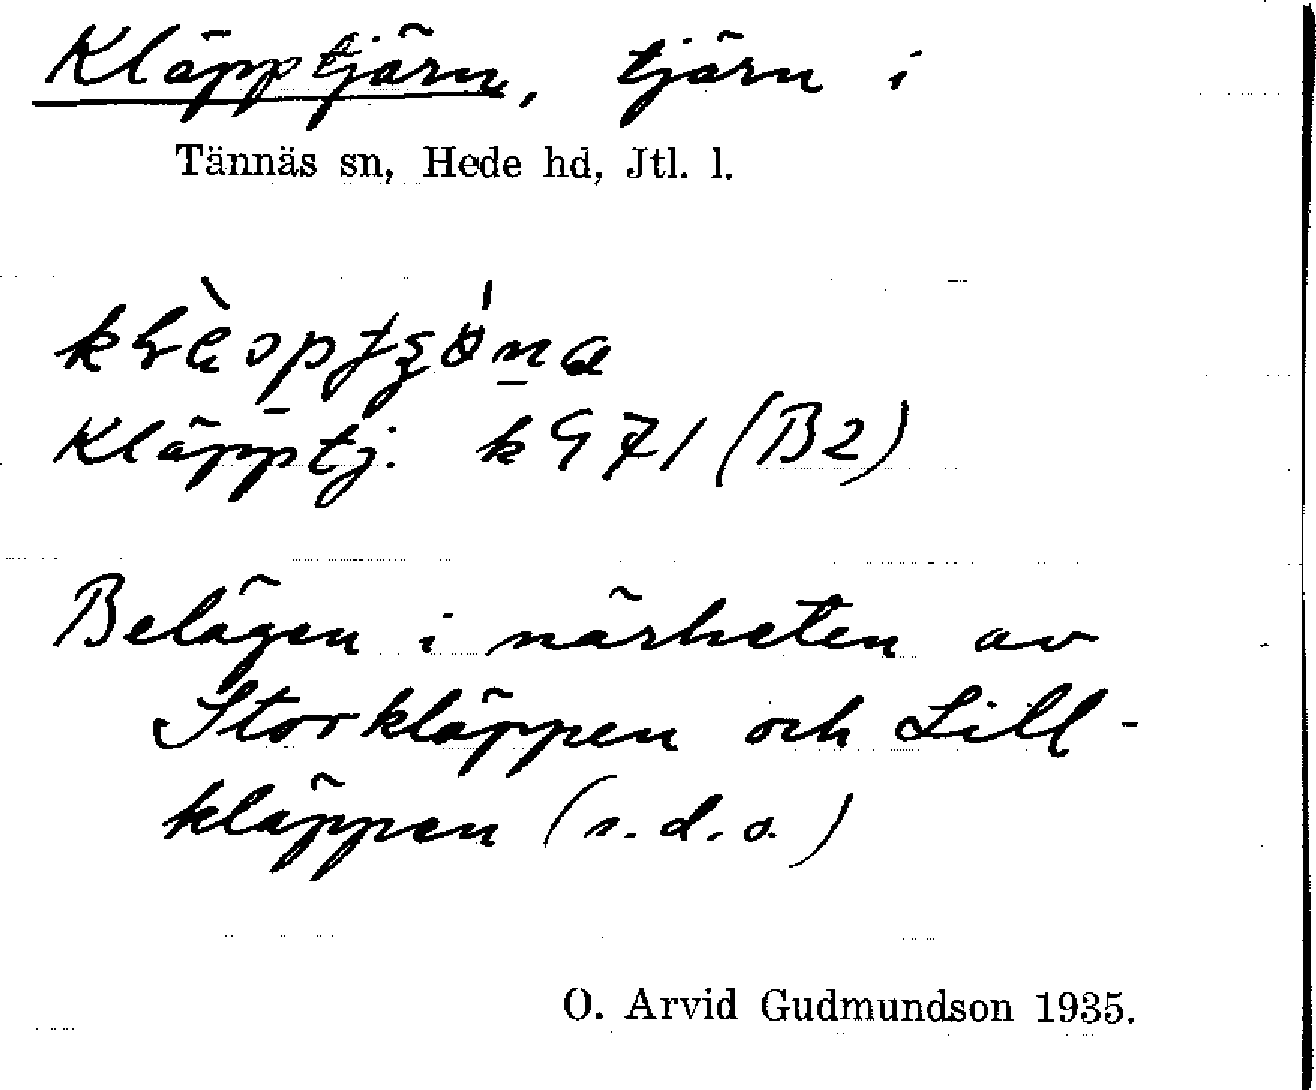 Kläpptjärn, tjärn i
Tännäs sn, Hede hd, Jtl. l.
Kläpptj. k 971 (B2)
Belägen i närheten av
Storkläppen och Lill-
kläppen (s.d.o.)
O. Arvid Gudmundson 1935.